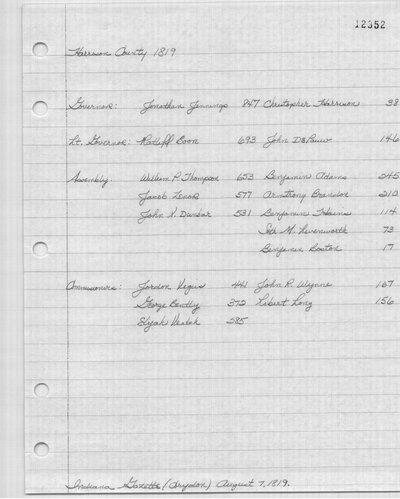 12352
Harrison County 1819
Governor: Jonathan Jennings 847 Christopher Harrison 38
Lt. Governor: Ratliff Boon 693 John DePauw 146
Assembly: William P. Thompson 653 Benjamin Adams 245
Jacob Zenor 577 Armstrong Brandon 210
John N. Dunbar 531 Benjamin Haines 114
Seth M. Levenworth 73
Benjamin Boston 17
Commissioners: Jordon Vigus 441 John R. Wynne 167
George Bently 372 Robert Long 156
Elijah 285
Indiana Gazette (Corydon) August 7, 1819.